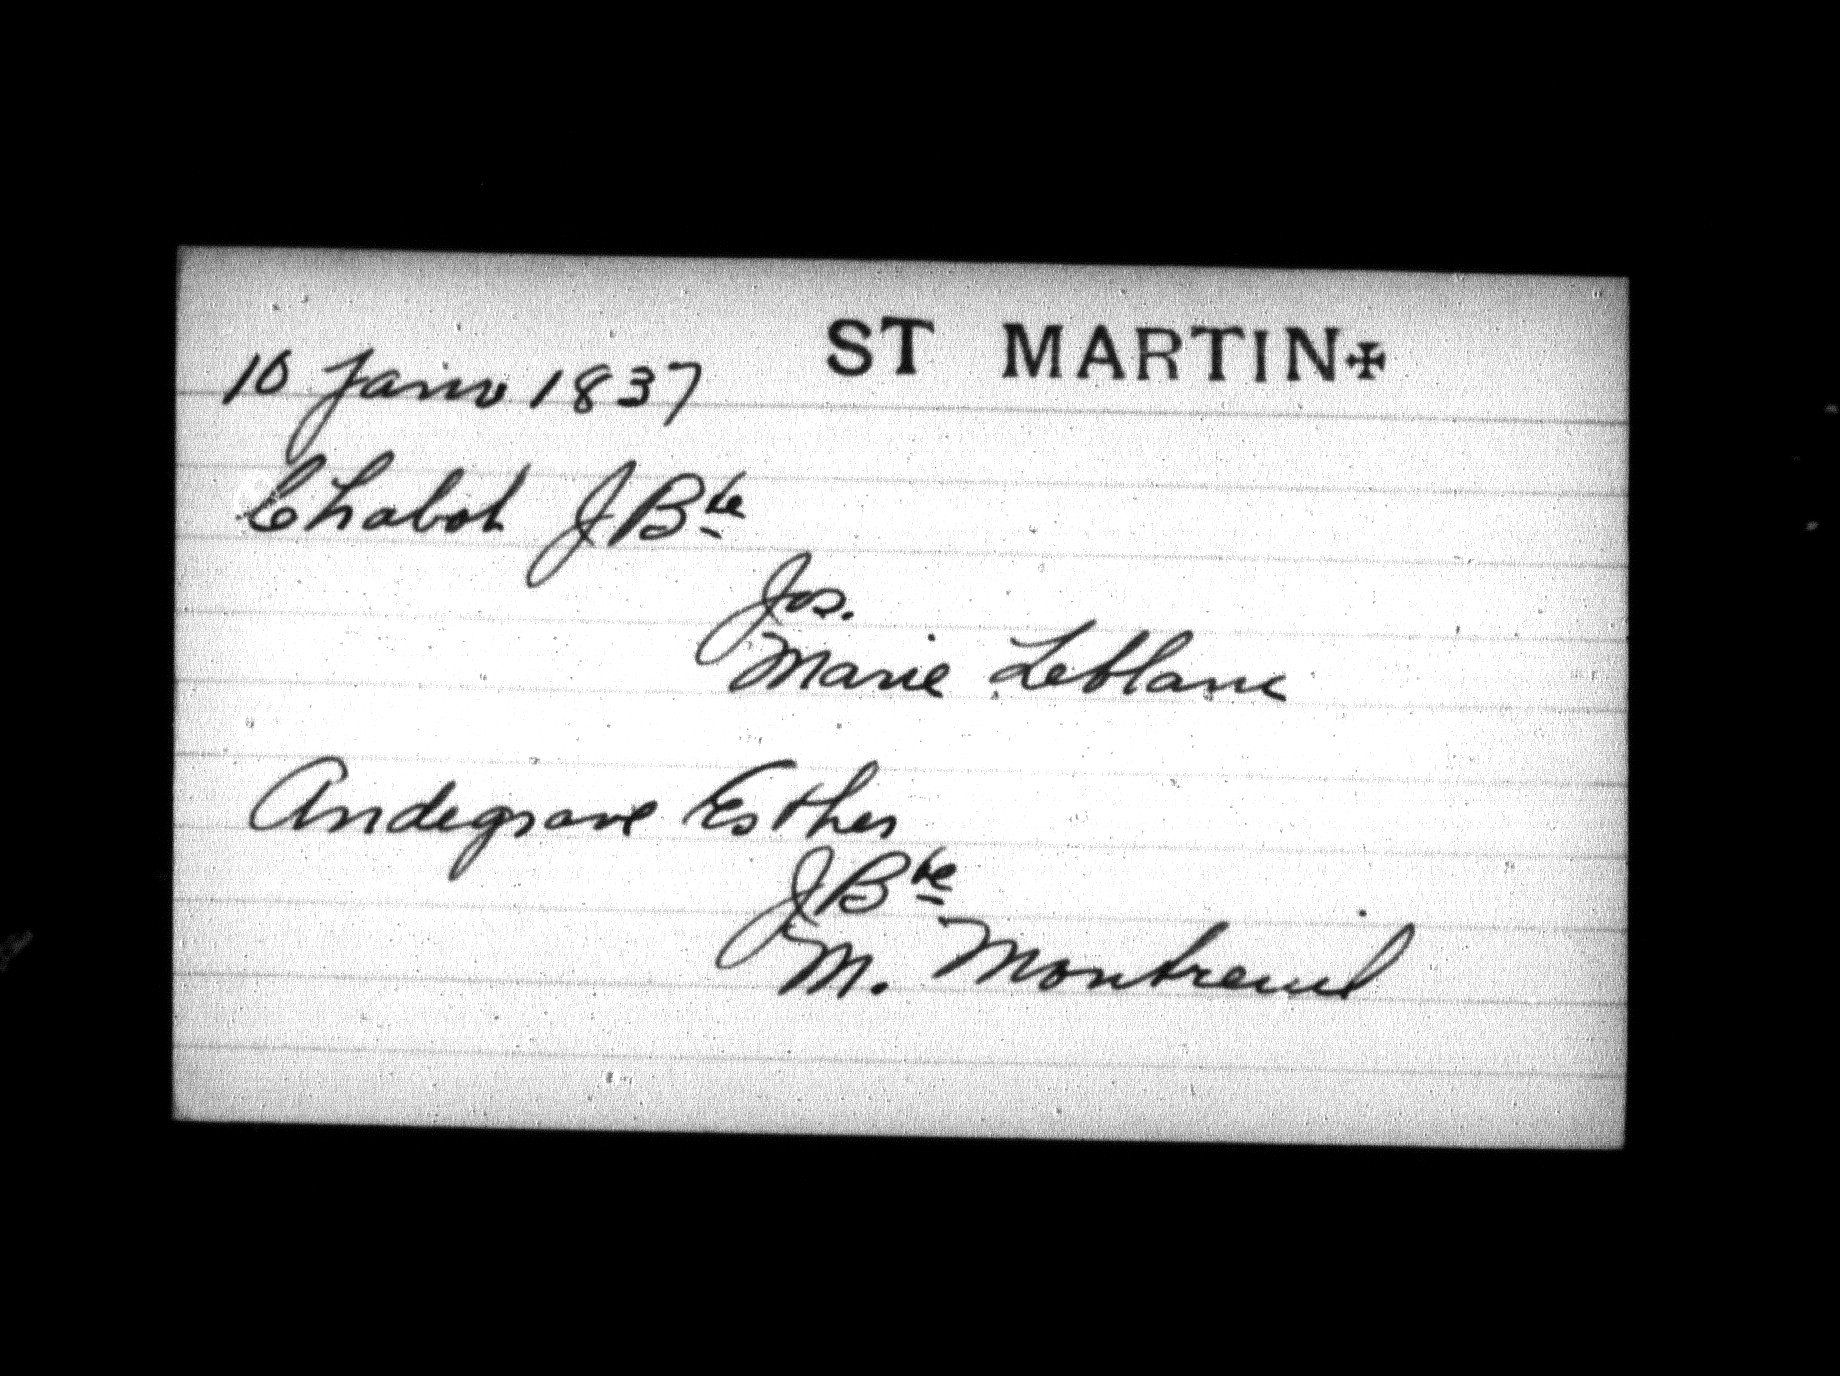 ST MARTIN✠
10 Janv 1837
Chabot J Bte
Jos.
Marie Leblanc
Andegrave Esther
J Bte
M. Montreuil